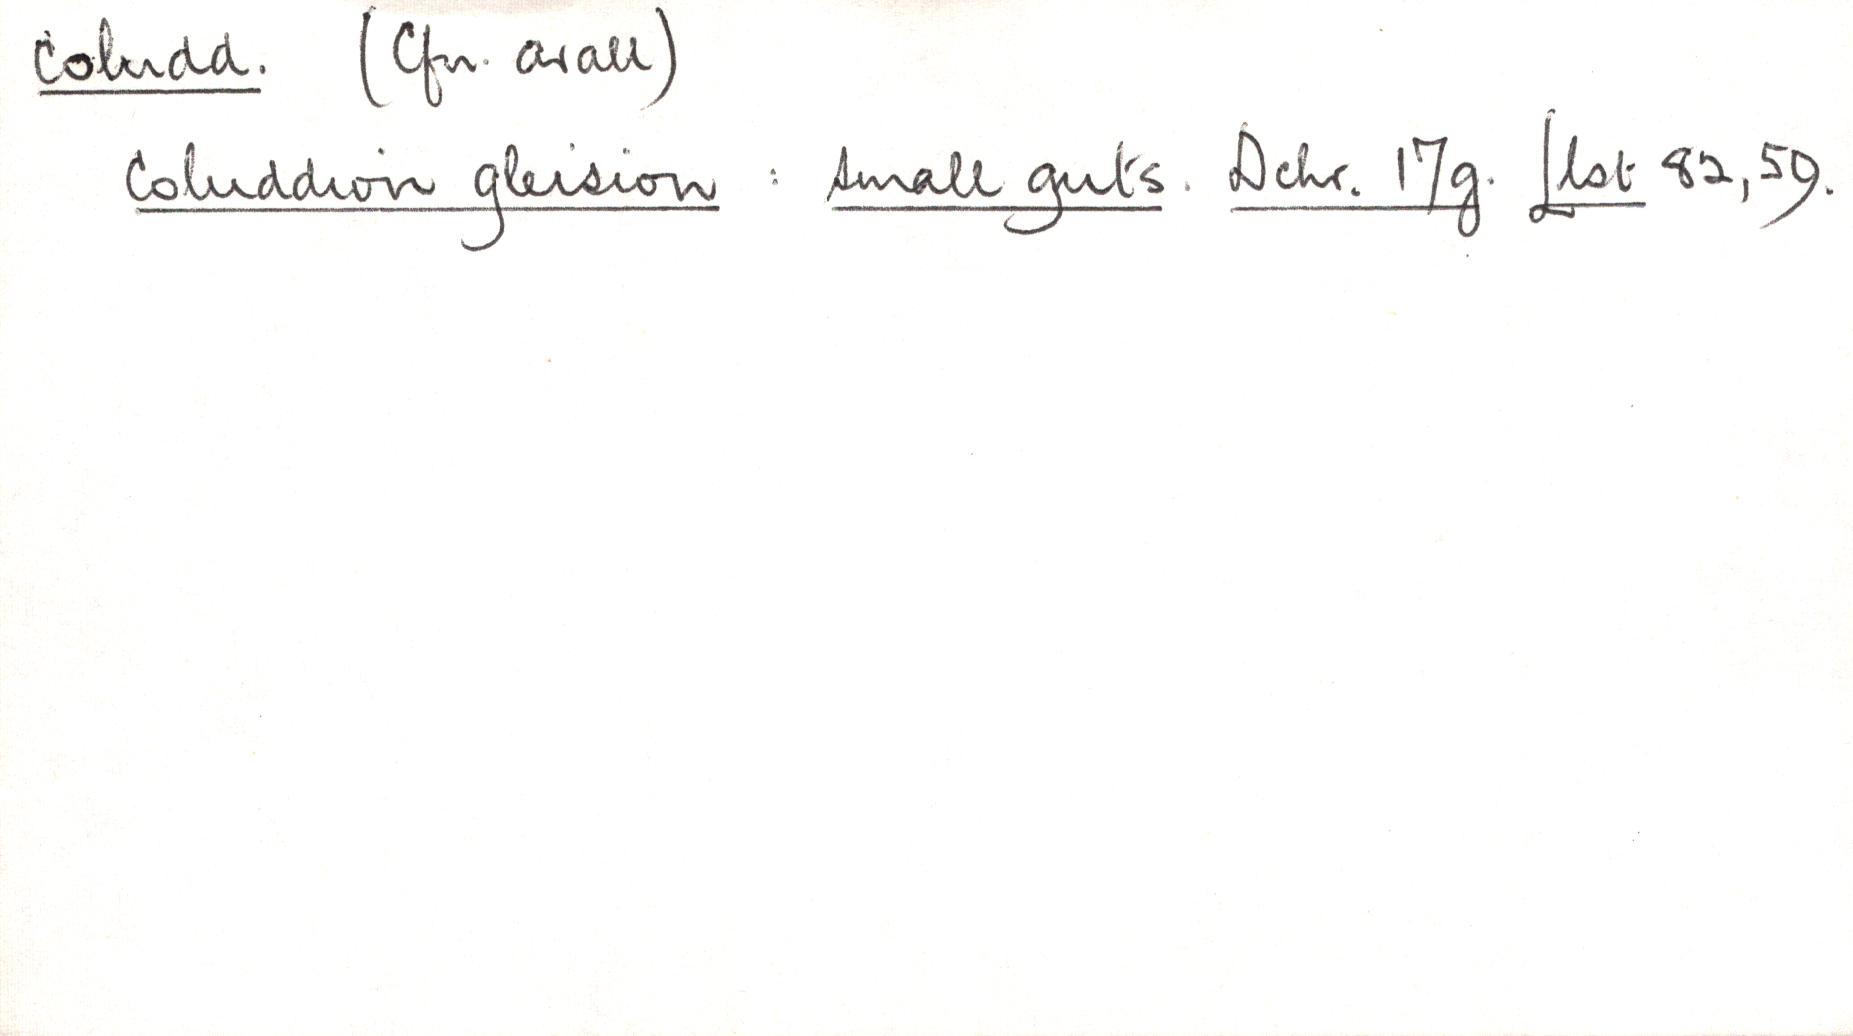 Coludd. (Cfn. arall)
Coluddion gleision : small guts. Dchr. 17g. Llst 82, 59.